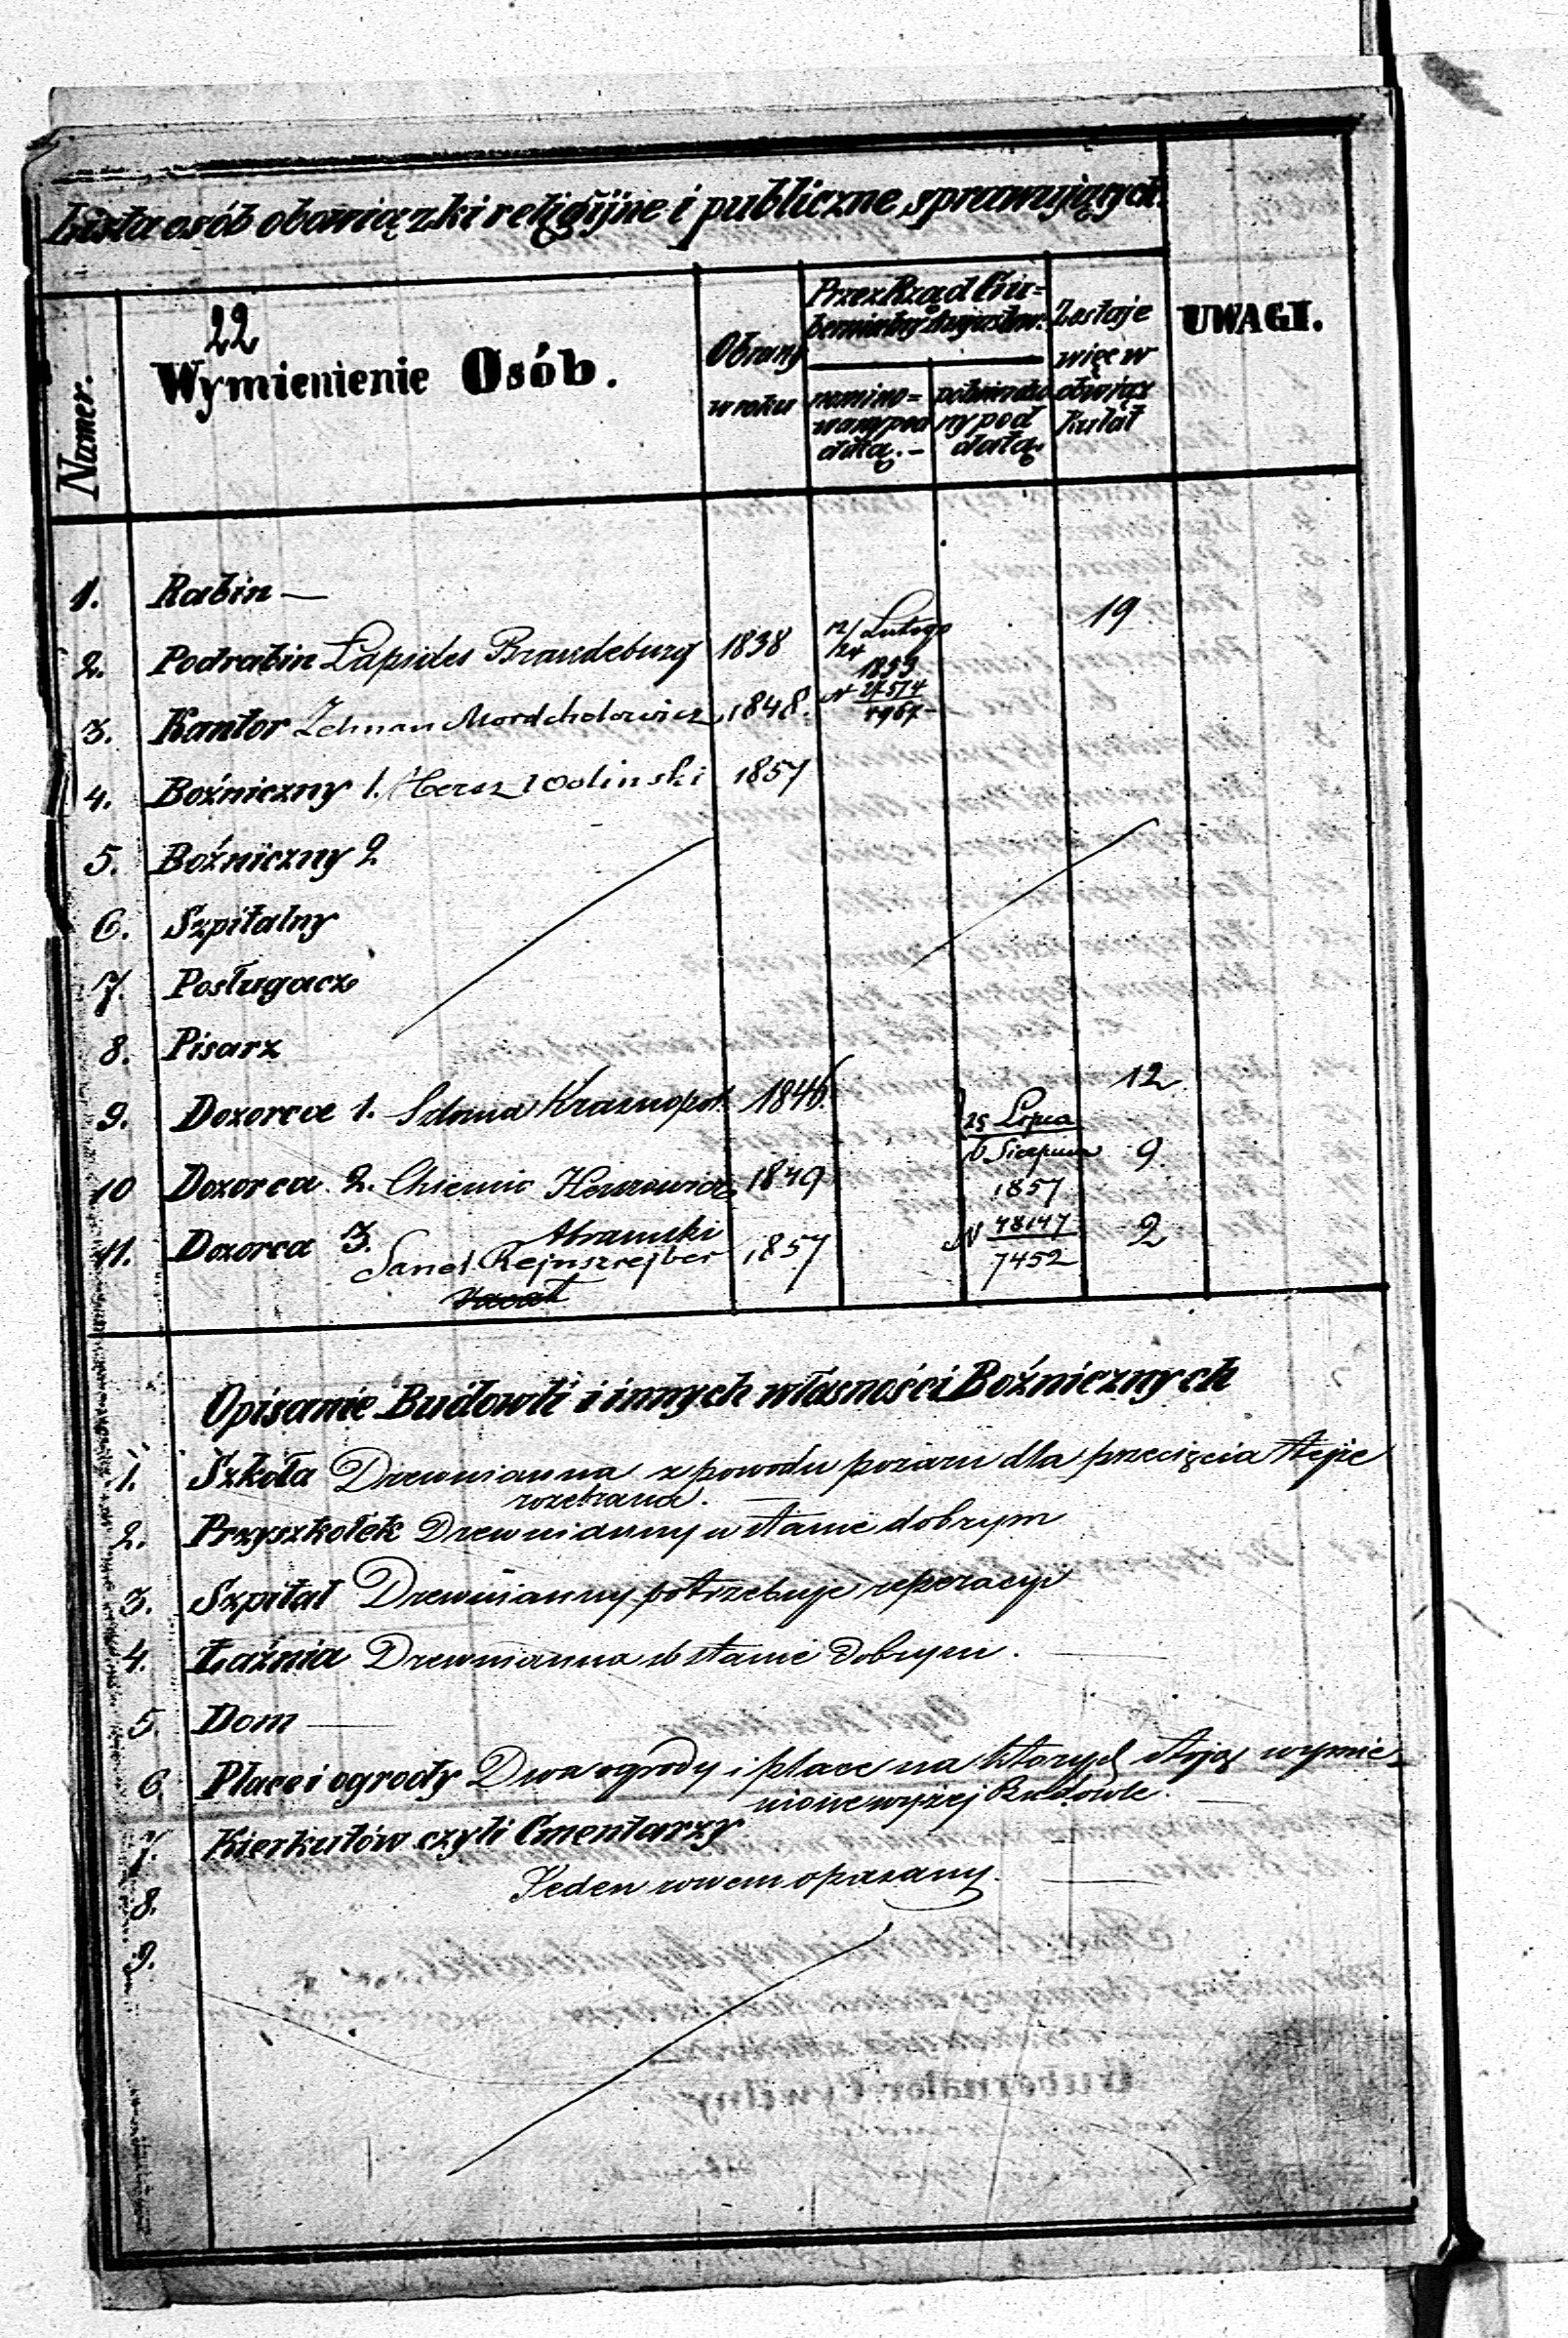 Lista osób obowiązki religijne i publiczne sprawujących.
Numer.
22
Wymienienie Osób.
Obrany w roku
Przez Rząd Gu=
bernialny Augustow:
nomino=
wany pod
datą. —
potwierdzo
ny pod
datą.
Zostaje
więc w
obowiąz
ku lat
UWAGI.
1. Rabin —
2. Podrabin Lapides Brandeburg 1838 12/24 Lutego 1853 N 19
3. Kantor Zelman Mordchelowicz 1848.
4. Bożniczny 1. Hersz Wolinski 1857
5. Bożniczny 2
6. Szpitalny
7. Posługacz
8. Pisarz
9. Dozorca 1. Krasnopol. 1846. 12
10 Dozorca 2. 1849 25 Lipca / 6 Sierpnia 1857 9.
11. Dozorca 3. Abramski
Rejnszrejber 1857 N 48147/7452 2
Opisanie Budowli i innych własności Bożnicznych
1. Szkoła Drewnianna z powodu pożaru dla przecięcia tejże
rozebrana. —
2. Przyszkołek Drewnianny w stanie dobrym
3. Szpital Drewnianny potrzebuje reperacyi
4. Łaźnia Drewnianna w stanie dobrym. —
5. Dom —
6 Place i ogrody Dwa ogrody i place na ktorych stoją wymie=
nione wyżej Budowle. —
7. Kierkutów czyli Cmentarzy
Jeden rowem opasany. —
8.
9.